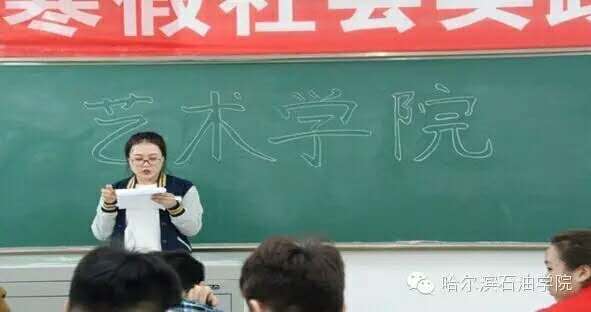 寒假社会实践
艺术学院
哈尔滨石油学院